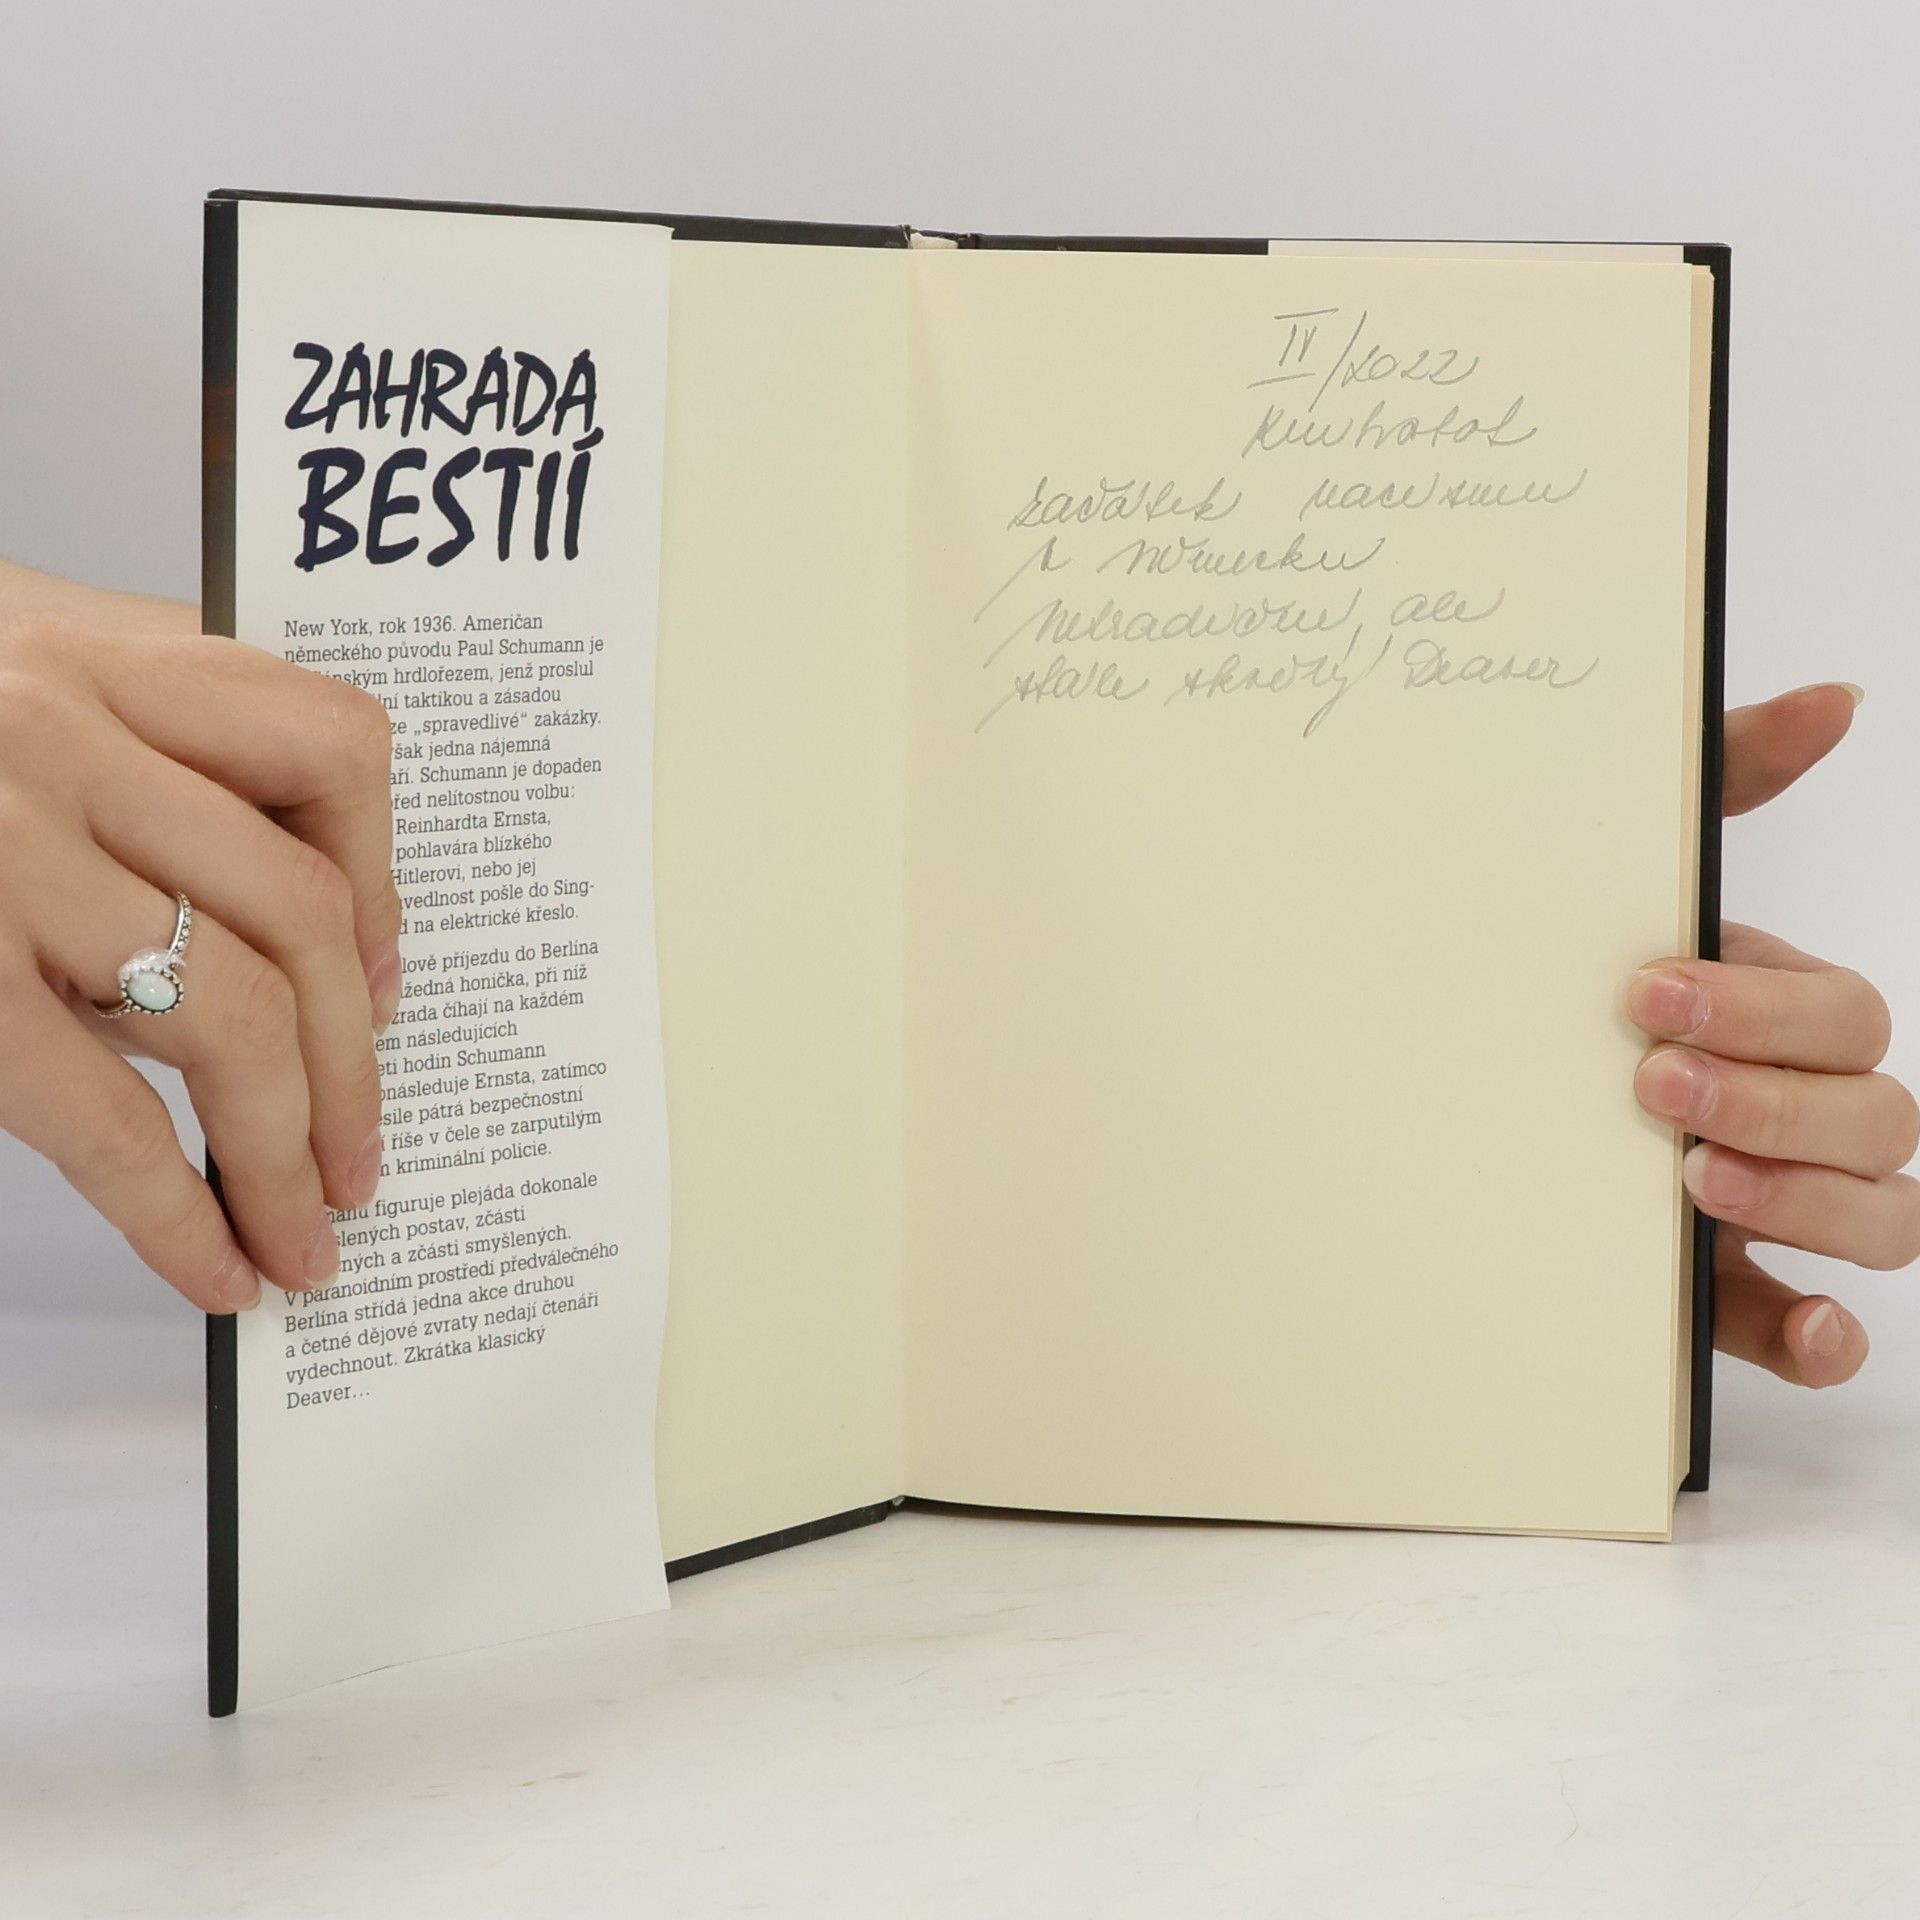 ZAHRADA
BESTIÍ
New York, rok 1936. Američan
německého původu Paul Schumann je
hrdlořezem, jenž proslul
taktikou a zásadou
„spravedlivé“ zakázky.
jedna nájemná
Schumann je dopaden
nelítostnou volbu:
Reinhardta Ernsta,
pohlavára blízkého
Hitlerovi, nebo jej
pošle do Sing-
na elektrické křeslo.
příjezdu do Berlína
honička, při níž
zrada číhají na každém
následujících
hodin Schumann
Ernsta, zatímco
pátrá bezpečnostní
říše v čele se zarputilým
kriminální policie.
figuruje plejáda dokonale
postav, zčásti
a zčásti smyšlených.
V paranoidním prostředí předválečného
Berlína střídá jedna akce druhou
a četné dějové zvraty nedají čtenáři
vydechnout. Zkrátka klasický
Deaver...
IV/2022
začátek nacismu
v Německu
netradiční, ale
stále skvělý Deaver